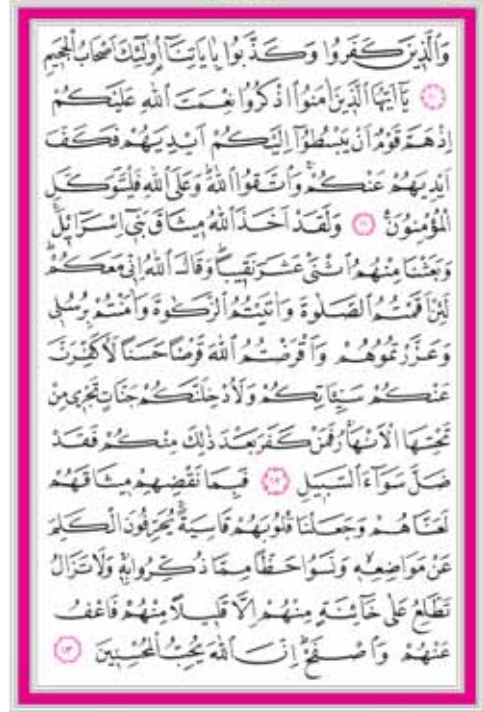 وَالَّذِينَ كَفَرُوا وَكَذَّبُوا بِاٰيَاتِنَٓا اُو۬لٰٓئِكَ اَصْحَابُ الْجَحٖيمِ
﴿١٠﴾ يَٓا اَيُّهَا الَّذٖينَ اٰمَنُوا اذْكُرُوا نِعْمَتَ اللّٰهِ عَلَيْكُمْ
اِذْ هَمَّ قَوْمٌ اَنْ يَبْسُطُٓوا اِلَيْكُمْ اَيْدِيَهُمْ فَكَفَّ
اَيْدِيَهُمْ عَنْكُمْۚ وَاتَّقُوا اللّٰهَۜ وَعَلَى اللّٰهِ فَلْيَتَوَكَّلِ
الْمُؤْمِنُونَ۟ ﴿١١﴾ وَلَقَدْ اَخَذَ اللّٰهُ مٖيثَاقَ بَنٖٓي اِسْرَٓائٖلَۚ
وَبَعَثْنَا مِنْهُمُ اثْنَيْ عَشَرَ نَقٖيبًاۜ وَقَالَ اللّٰهُ اِنّٖي مَعَكُمْۜ
لَئِنْ اَقَمْتُمُ الصَّلٰوةَ وَاٰتَيْتُمُ الزَّكٰوةَ وَاٰمَنْتُمْ بِرُسُلٖي
وَعَزَّرْتُمُوهُمْ وَاَقْرَضْتُمُ اللّٰهَ قَرْضًا حَسَنًا لَاُكَفِّرَنَّ
عَنْكُمْ سَيِّـَٔاتِكُمْ وَلَاُدْخِلَنَّكُمْ جَنَّاتٍ تَجْرٖي مِنْ
تَحْتِهَا الْاَنْهَارُۚ فَمَنْ كَفَرَ بَعْدَ ذٰلِكَ مِنْكُمْ فَقَدْ
ضَلَّ سَوَٓاءَ السَّبٖيلِ ﴿١٢﴾ فَبِمَا نَقْضِهِمْ مٖيثَاقَهُمْ
لَعَنَّاهُمْ وَجَعَلْنَا قُلُوبَهُمْ قَاسِيَةًۚ يُحَرِّفُونَ الْكَلِمَ
عَنْ مَوَاضِعِهٖۙ وَنَسُوا حَظًّا مِمَّا ذُكِّرُوا بِهٖۚ وَلَا تَزَالُ
تَطَّلِعُ عَلٰى خَٓائِنَةٍ مِنْهُمْ اِلَّا قَلٖيلًا مِنْهُمْ فَاعْفُ
عَنْهُمْ وَاصْفَحْۜ اِنَّ اللّٰهَ يُحِبُّ الْمُحْسِنٖينَ ﴿١٣﴾